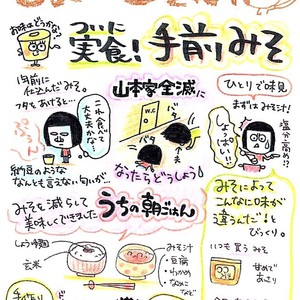 お味はどうかな?
ついに
実食!手前みそ
1年前に
仕込んだみそ。
フタをあけると…
これ、食べて
大丈夫かな
ぷ〜ん
納豆のような
なんとも言えない匂いが
山本家全滅に
W.C.
バタ
バタ
なったらどうしよう
ひとりで味見
まずはみそ汁!
しょっぱい…
塩分高め!?
みそを減らして
美味しくできました
うちの朝ごはん
しょうゆ麹
玄米
みそ汁
・豆腐
・わかめ
なめこ
など
みそによって
こんなに味が
違うんだ!と
びっくり。
いつも買うみそ
甘めで
あっさり